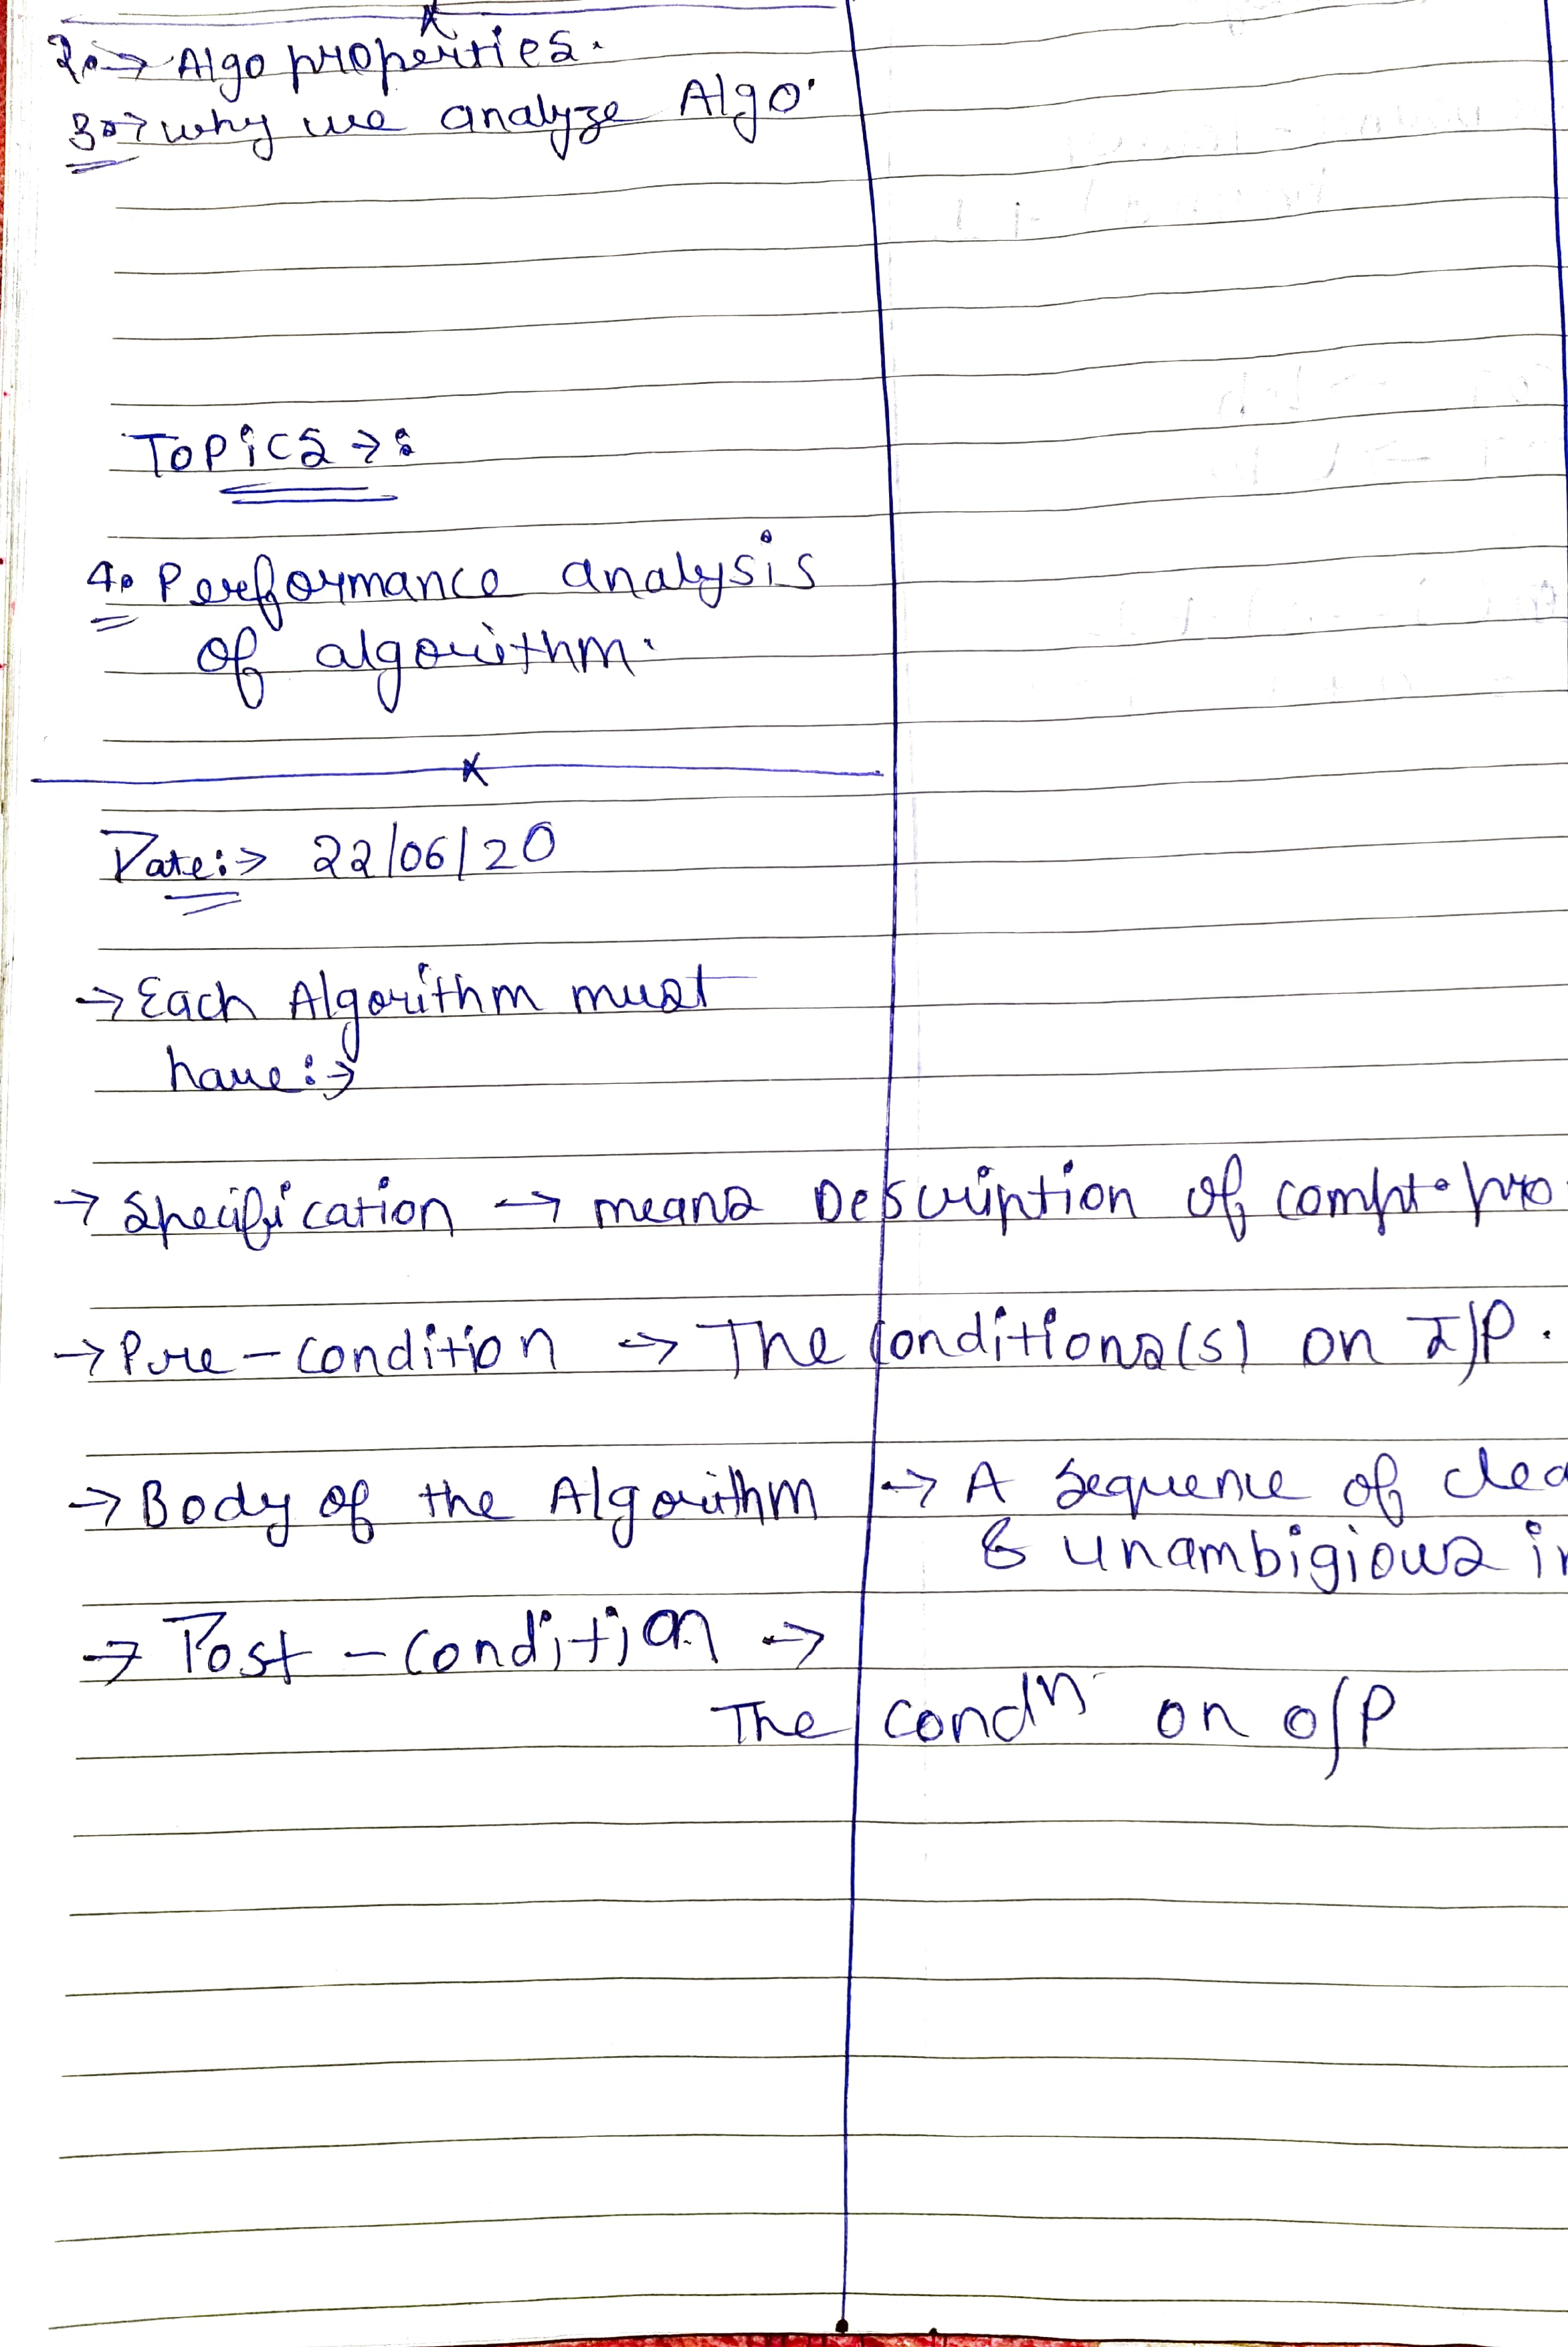 2.→ Algo properties.
3.→ why we analyze Algo.
Topics →:
4. Performance analysis
of algorithm.
Date:→ 22/06/20
→ Each Algorithm must
have:→
→ Specification → means Description of compt. pro
→ Pre-condition → The conditions(s) on I/P.
→ Body of the Algorithm → A sequence of clea
& unambigious in
→ Post-condition →
The condn. on O/P